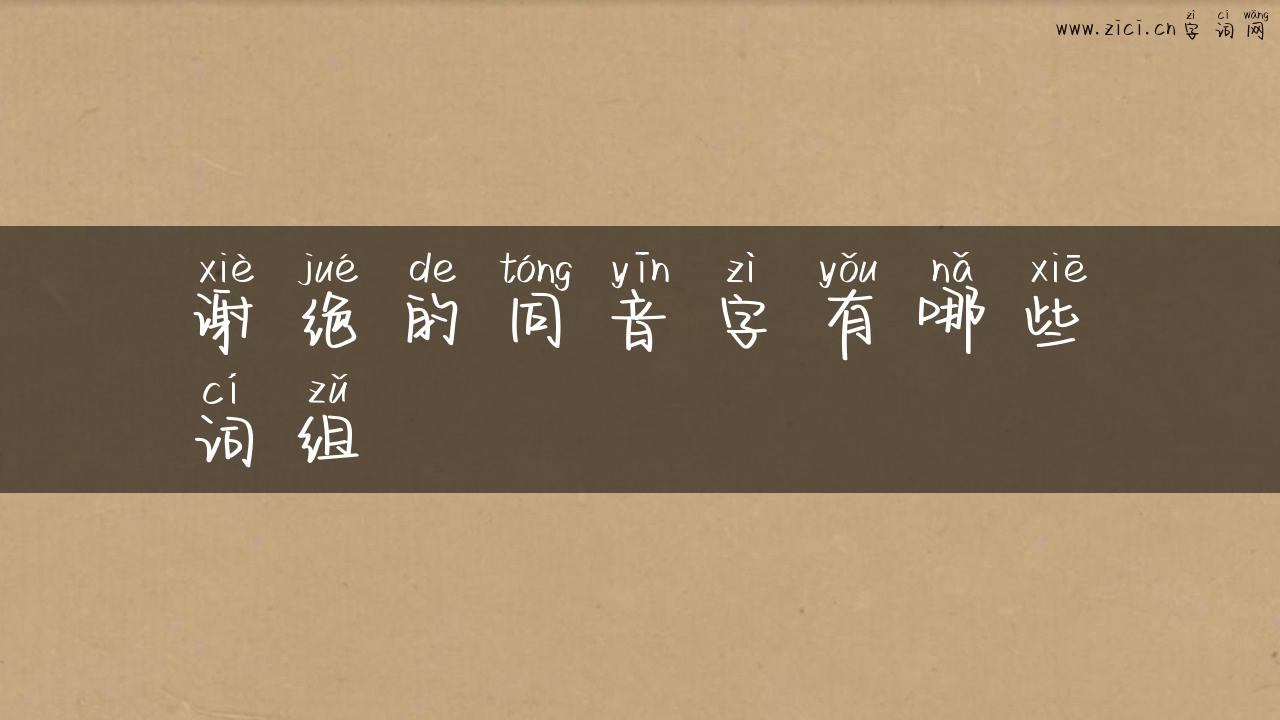 zì cí wǎng
www.zici.cn 字 词 网
xiè jué de tóng yīn zì yǒu nǎ xiē
谢 绝 的 同 音 字 有 哪 些
cí zǔ
词 组